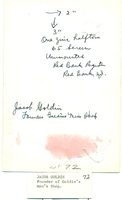 → 2"
3"
One Zinc halftone
65 Screen
Unmounted
Red Bank Register
Red Bank, NJ.
Jacob Goldin
Founder Goldin's Men's Shop
72
JACOB GOLDIN 72
Founder of Goldin's
Men's Shop.